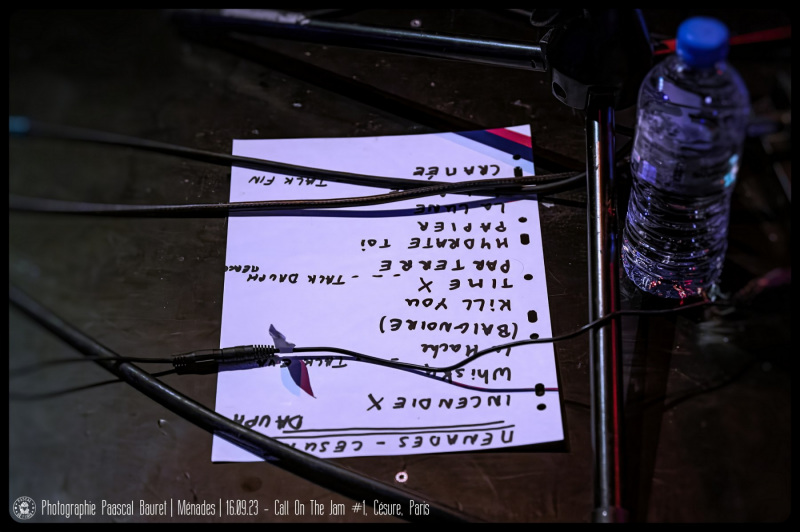 MENADES - CESU
DAUPH
INCENDIE X
WHiSK
TALK
la Hache
(BAIGNOIRE)
KiLL YOU
TIME X
- - TALK DAUPH
PAR TERRE
HYDRATE TOi
PAPIER
LA LUNE
CRAMÉE
TALK FiN
Photographie Paascal Bauret | Ménades | 16.09.23 - Call On The Jam #1, Césure, Paris